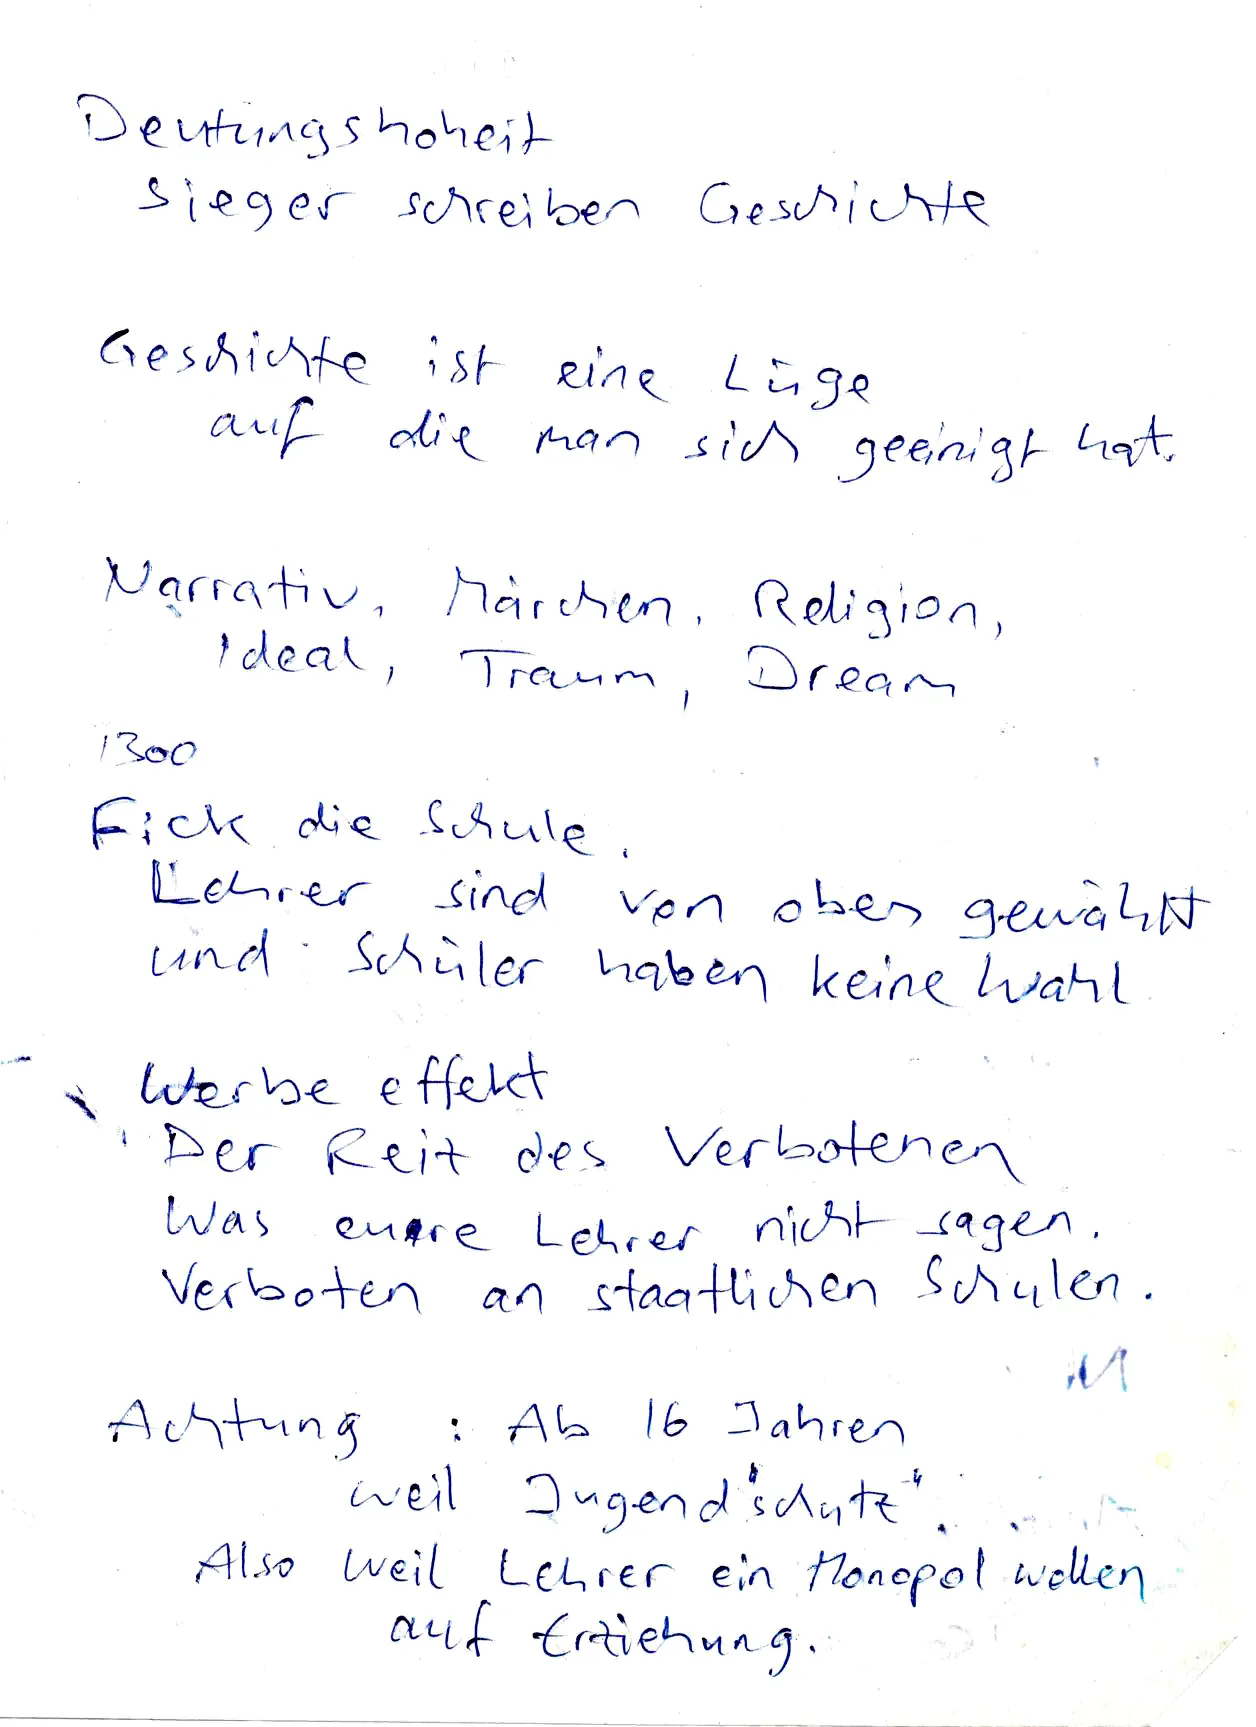 Deutungshoheit
Sieger schreiben Geschichte
Geschichte ist eine Lüge
auf die man sich geeinigt hat.
Narrativ, Märchen, Religion,
Ideal, Traum, Dream
1300
Fick die Schule.
Lehrer sind von oben gewählt
und Schüler haben keine Wahl
Werbe effekt
Der Reit des Verbotenen
Was eure Lehrer nicht sagen.
Verboten an staatlichen Schulen.
Achtung : Ab 16 Jahren
weil Jugend"schutz".
Also weil Lehrer ein Monopol wollen
auf Erziehung.